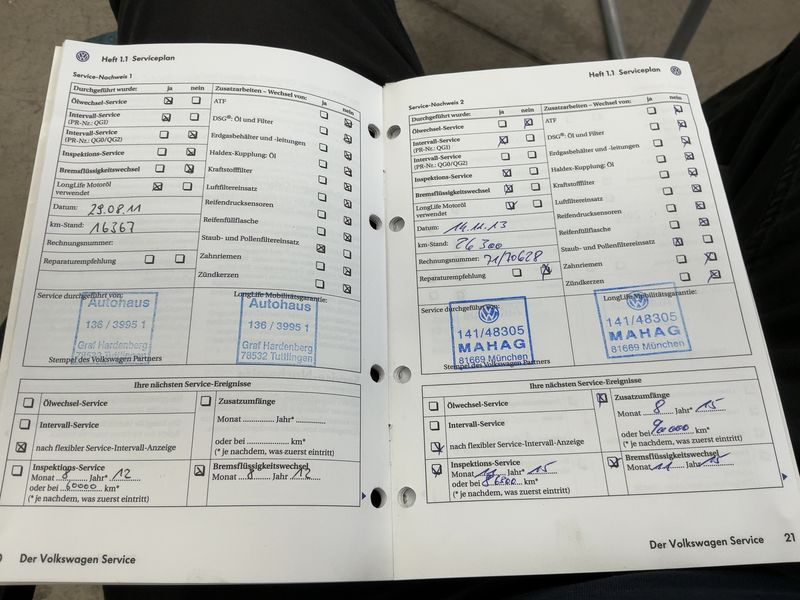 Heft 1.1 Serviceplan
Service-Nachweis 1
Durchgeführt wurde: ja nein
Ölwechsel-Service
Intervall-Service
(PR-Nr.: QG1)
Intervall-Service
(PR-Nr.: QG0/QG2)
Inspektions-Service
Bremsflüssigkeitswechsel
LongLife Motoröl
verwendet
Datum: 29.08.11
km-Stand: 16367
Rechnungsnummer:
Reparaturempfehlung
Zusatzarbeiten – Wechsel von: ja nein
ATF
DSG®: Öl und Filter
Erdgasbehälter und -leitungen
Haldex-Kupplung: Öl
Kraftstofffilter
Luftfiltereinsatz
Reifendrucksensoren
Reifenfüllflasche
Staub- und Pollenfiltereinsatz
Zahnriemen
Zündkerzen
Service durchgeführt von:
Autohaus
136 / 3995 1
Graf Hardenberg
78532 Tuttlingen
LongLife Mobilitätsgarantie:
Autohaus
136 / 3995 1
Graf Hardenberg
78532 Tuttlingen
Stempel des Volkswagen Partners
Ihre nächsten Service-Ereignisse
Ölwechsel-Service
Intervall-Service
nach flexibler Service-Intervall-Anzeige
Zusatzumfänge
Monat Jahr*
oder bei km*
(* je nachdem, was zuerst eintritt)
Inspektions-Service
Monat 8 Jahr* 12
oder bei 60000 km*
(* je nachdem, was zuerst eintritt)
Bremsflüssigkeitswechsel
Monat 8 Jahr 12
Der Volkswagen Service
Heft 1.1 Serviceplan
Service-Nachweis 2
Durchgeführt wurde: ja nein
Ölwechsel-Service
Intervall-Service
(PR-Nr.: QG1)
Intervall-Service
(PR-Nr.: QG0/QG2)
Inspektions-Service
Bremsflüssigkeitswechsel
LongLife Motoröl
verwendet
Datum: 14.11.13
km-Stand: 26300
Rechnungsnummer: 71/70628
Reparaturempfehlung
Zusatzarbeiten – Wechsel von: ja nein
ATF
DSG®: Öl und Filter
Erdgasbehälter und -leitungen
Haldex-Kupplung: Öl
Kraftstofffilter
Luftfiltereinsatz
Reifendrucksensoren
Reifenfüllflasche
Staub- und Pollenfiltereinsatz
Zahnriemen
Zündkerzen
Service durchgeführt von:
141/48305
MAHAG
81669 München
LongLife Mobilitätsgarantie:
141/48305
MAHAG
81669 München
Stempel des Volkswagen Partners
Ihre nächsten Service-Ereignisse
Ölwechsel-Service
Intervall-Service
nach flexibler Service-Intervall-Anzeige
Zusatzumfänge
Monat 8 Jahr* 15
oder bei 90000 km*
(* je nachdem, was zuerst eintritt)
Inspektions-Service
Monat 11 Jahr* 15
oder bei km*
(* je nachdem, was zuerst eintritt)
Bremsflüssigkeitswechsel
Monat 11 Jahr 15
Der Volkswagen Service 21